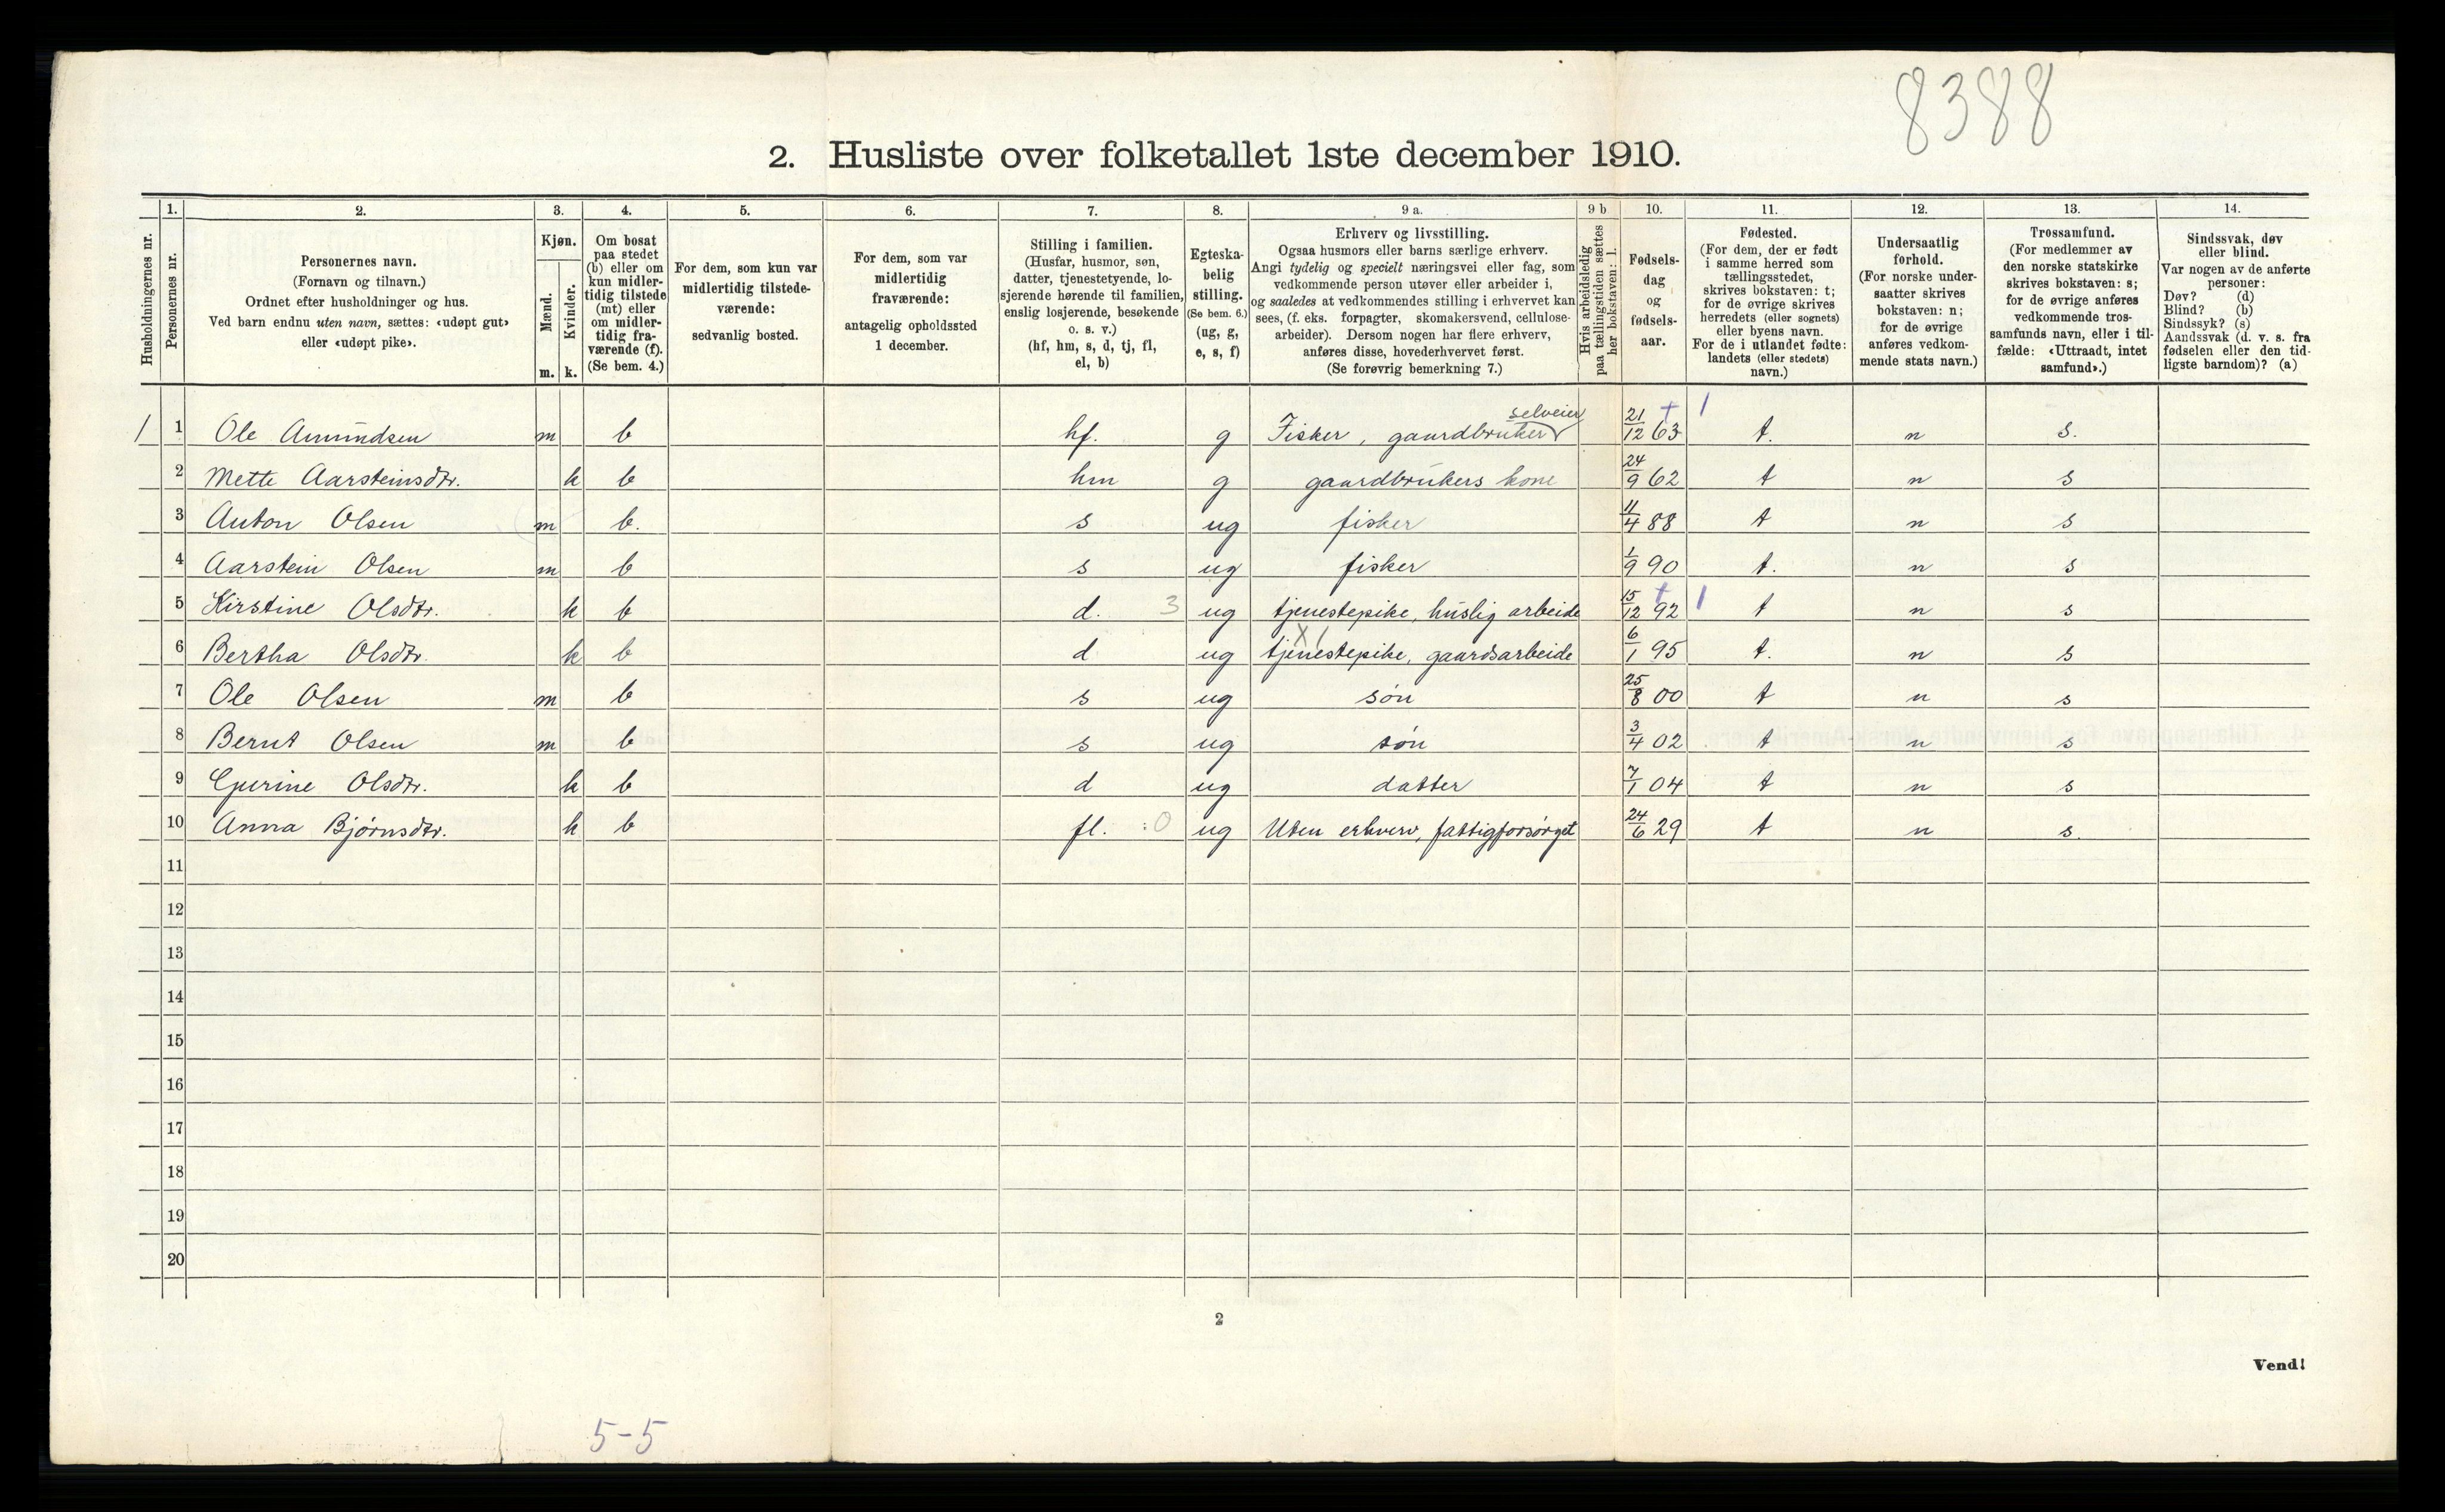 8388
2. Husliste over folketallet 1ste december 1910.
Husholdningernes nr.
1.
Personernes nr.
2.
Personernes navn.
(Fornavn og tilnavn.)
Ordnet efter husholdninger og hus.
Ved barn endnu uten navn, sættes: «udøpt gut»
eller «udøpt pike».
3.
Kjøn.
Mænd.
m.
Kvinder.
k.
4.
Om bosat
paa stedet
(b) eller om
kun midler-
tidig tilstede
(mt) eller
om midler-
tidig fra-
værende (f).
(Se bem. 4.)
5.
For dem, som kun var
midlertidig tilstede-
værende:
sedvanlig bosted.
6.
For dem, som var
midlertidig
fraværende:
antagelig opholdssted
1 december.
7.
Stilling i familien.
(Husfar, husmor, søn,
datter, tjenestetyende, lo-
sjerende hørende til familien,
enslig losjerende, besøkende
o. s. v.)
(hf, hm, s, d, tj, fl,
el, b)
8.
Egteska-
belig
stilling.
(Se bem. 6.)
(ug, g,
e, s, f)
9 a.
Erhverv og livsstilling.
Ogsaa husmors eller barns særlige erhverv.
Angi tydelig og specielt næringsvei eller fag, som
vedkommende person utøver eller arbeider i,
og saaledes at vedkommendes stilling i erhvervet kan
sees, (f. eks. forpagter, skomakersvend, cellulose-
arbeider). Dersom nogen har flere erhverv,
anføres disse, hovederhvervet først.
(Se forøvrig bemerkning 7.)
9 b
Hvis arbeidsledig
paa tællingstiden sættes
her bokstaven: l.
10.
Fødsels-
dag
og
fødsels-
aar.
11.
Fødested.
(For dem, der er født
i samme herred som
tællingsstedet,
skrives bokstaven: t;
for de øvrige skrives
herredets (eller sognets)
eller byens navn.
For de i utlandet fødte:
landets (eller stedets)
navn.)
12.
Undersaatlig
forhold.
(For norske under-
saatter skrives
bokstaven: n;
for de øvrige
anføres vedkom-
mende stats navn.)
13.
Trossamfund.
(For medlemmer av
den norske statskirke
skrives bokstaven: s;
for de øvrige anføres
vedkommende tros-
samfunds navn, eller i til-
fælde: «Uttraadt, intet
samfund».)
14.
Sindssvak, døv
eller blind.
Var nogen av de anførte
personer:
Døv? (d)
Blind? (b)
Sindssyk? (s)
Aandssvak (d. v. s. fra
fødselen eller den tid-
ligste barndom)? (a)
1 1 Ole Amundsen m b hf. g Fisker, gaardbruker selveier 21/12 63 t. n s.
2 Mette Aarsteinsdtr. k b hm g gaardbrukers kone 24/9 62 t n s
3 Anton Olsen m b. s ug fisker 11/4 88 t n s
4 Aarstein Olsen m b s ug fisker 1/9 90 t. n s
5 Kirstine Olsdtr. k b d. 3 ug tjenestepike, huslig arbeide 15/12 92 t n s
6 Bertha Olsdtr. k b d ug tjenestepike, gaardsarbeide 6/1 95 t. n s
7 Ole Olsen m b s ug søn 25/8 00 t n s
8 Bernt Olsen m b s ug søn 3/4 02 t n s
9 Gurine Olsdtr. k b d ug datter 7/1 04 t n s
10 Anna Bjørnsdtr. k b fl. :0 ug Uten erhverv, fattigforsørget 24/6 29 t n s.
11
12
13
14
15
16
17
18
19
20
2
Vend!
5-5